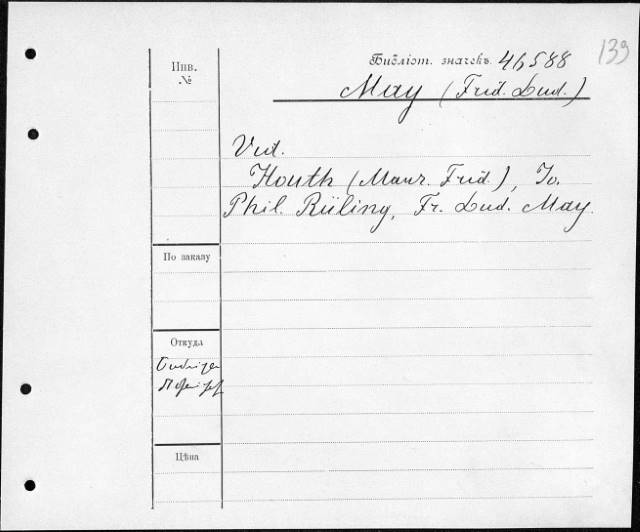 139
Библіот. значекъ 46588
Инв.
№
May (Frid. Lud.)
Vid.
Houth (Maur. Frid.), Io.
Phil. Rüling, Fr. Lud. May.
По заказу
Откуда
Цѣна